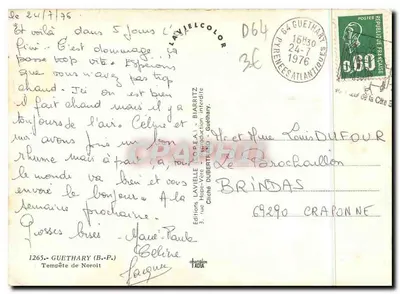 le 24/7/76
Et voilà dans 5 jours c'est
fini. C'est dommage, ça
passe trop vite. Espérons
que vous n'avez pas trop
chaud. Ici on est bien
il fait chaud mais il y a
toujours de l'air. Céline et
moi avons pris un
rhume mais à part ça tout
le monde va bien et vous
envoie le bonjour. A la
semaine prochaine.
Grosses bises
Marie-Paule
Céline
Jacques
1265.- GUETHARY (B.-P.)
Tempête de Noroit
LAVIELCOLOR
Editions LAVIELLE (S.O.P.E.A.I.) - BIARRITZ
2, rue Hope-Vère - Reproduction interdite
Cliché DUBERTRAND - Guethary.
D64
3€
64 GUETHARY
16H30
24-7
1976
PYRENEES ATLANTIQUES
POSTES
0,60
REPUBLIQUE FRANÇAISE
Mr et Mme Louis DUFOUR
Le Parochaillon
BRINDAS
69290 CRAPONNE